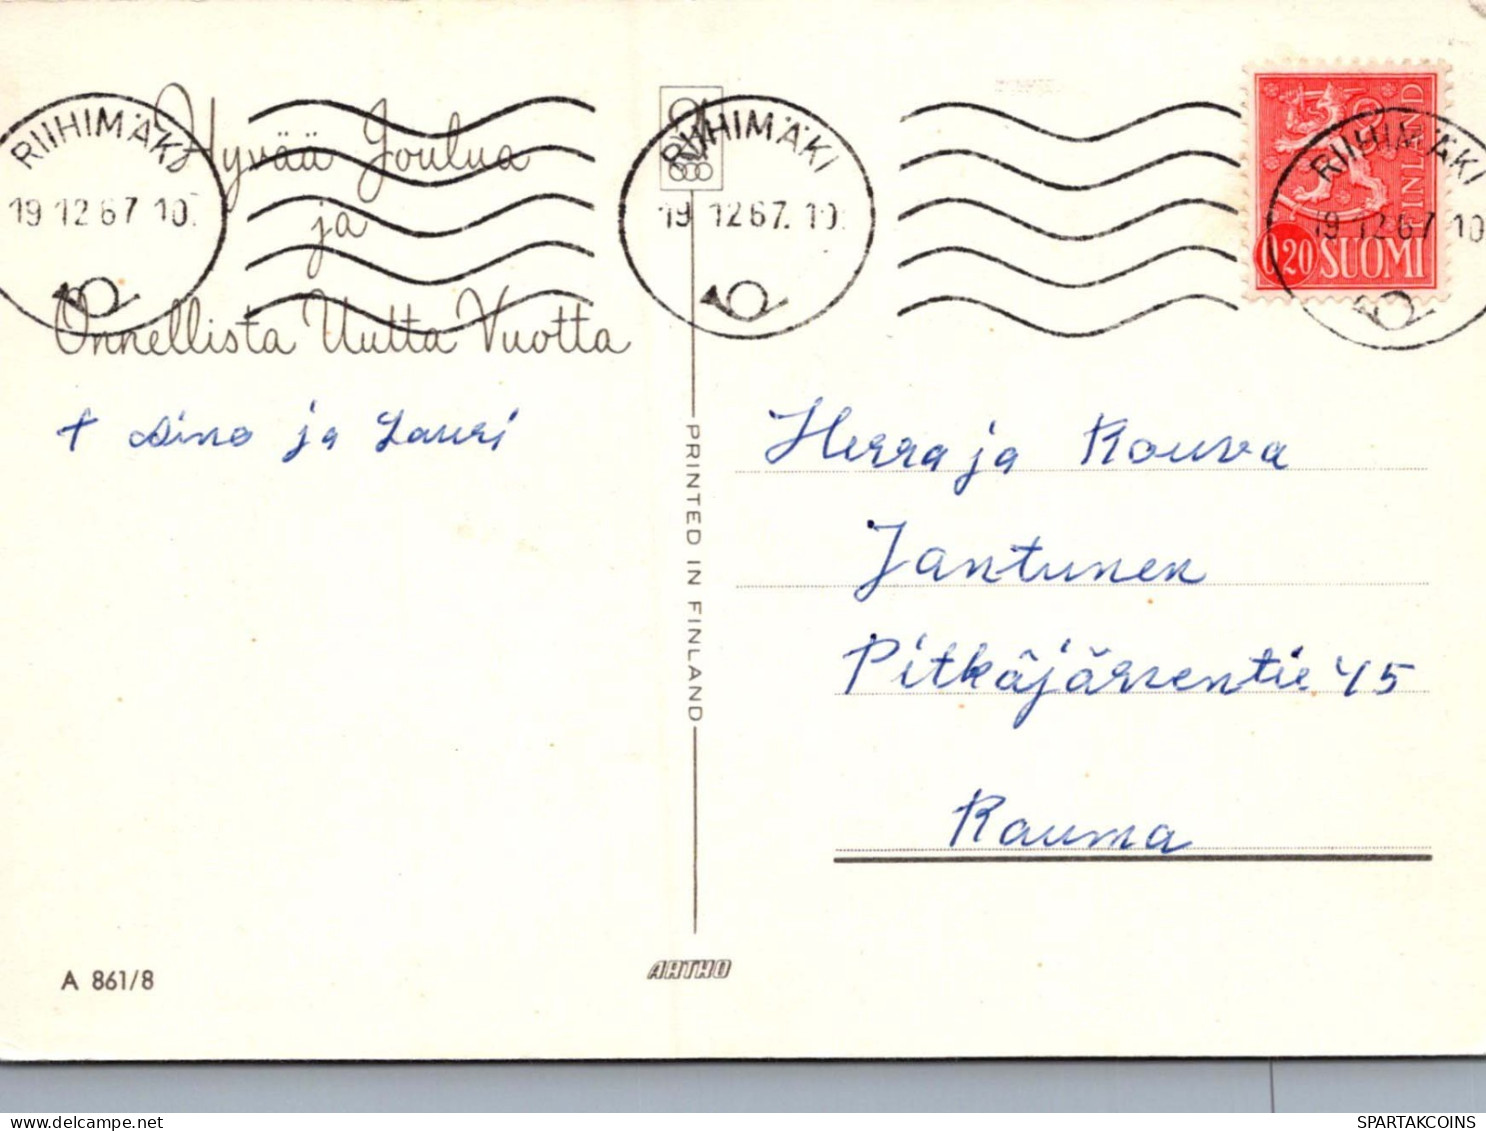 RIIHIMÄKI
19.12.67.10.
RIIHIMÄKI
19.12.67.10.
RIIHIMÄKI
19.12.67.10
FINLAND
0,20 SUOMI
Hyvää Joulua
ja
Onnellista Uutta Vuotta
t Aino ja Lauri
PRINTED IN FINLAND
Herra ja Rouva
Jantunen
Pitkäjärventie 45
Rauma
A 861/8
ARTKO
The Delcampe.net website
SPARTAKCOINS